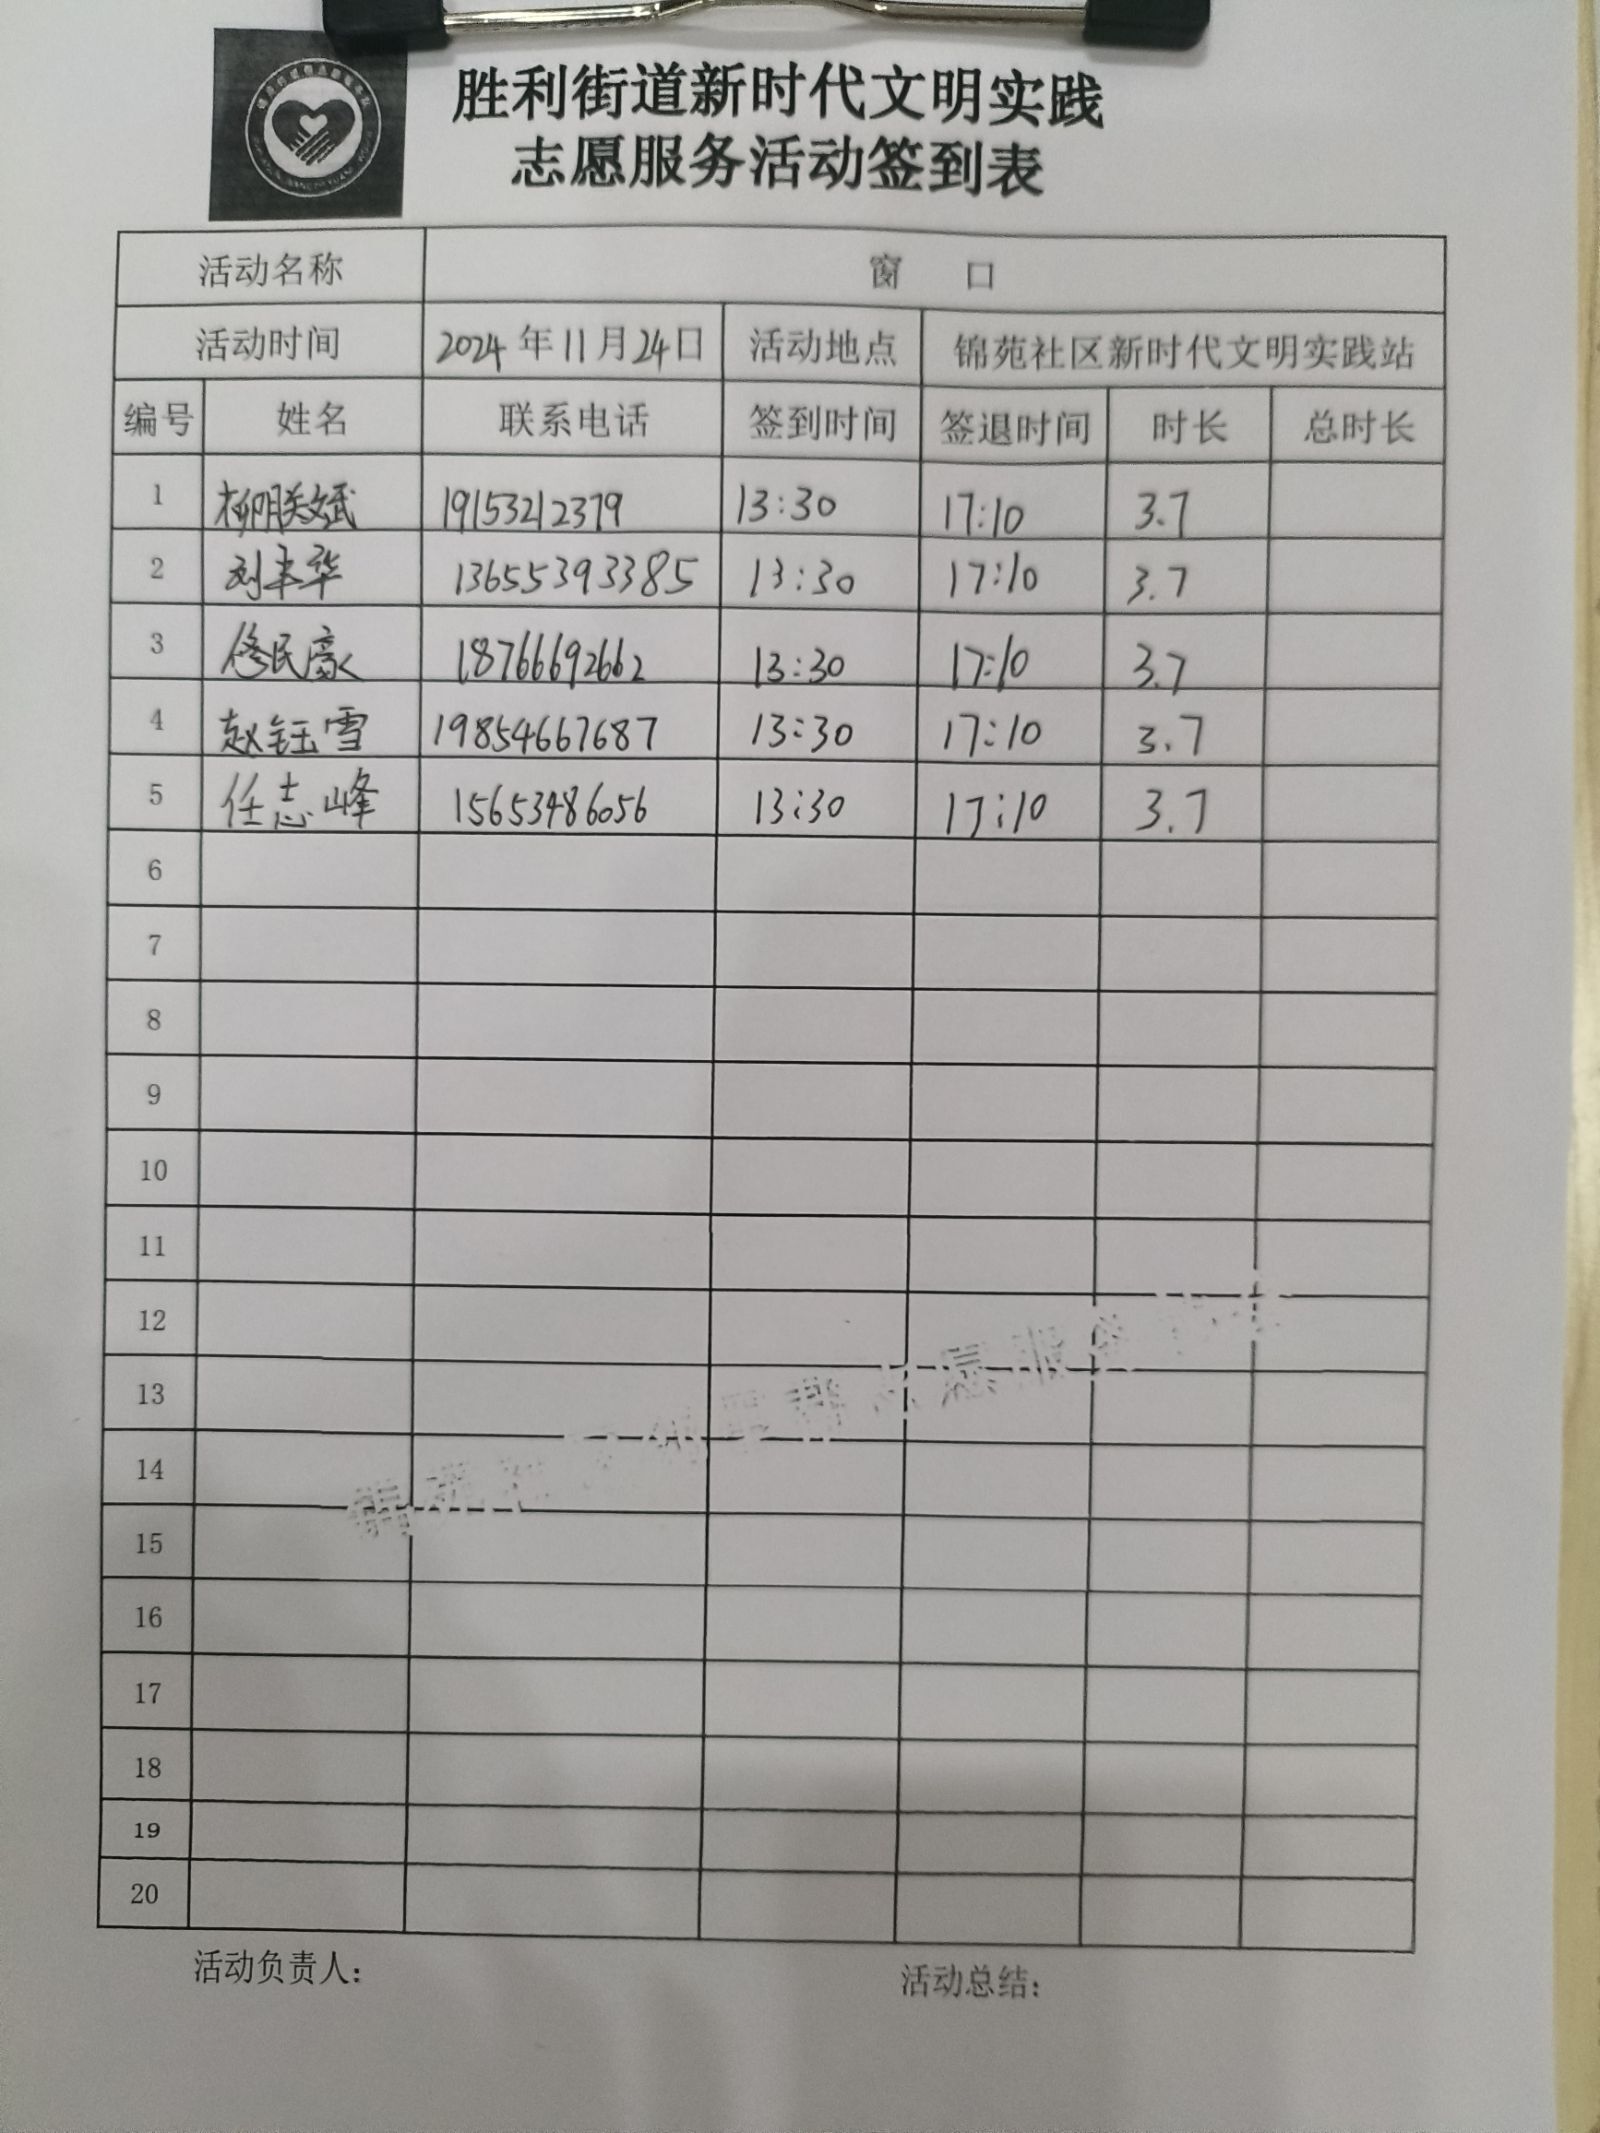 胜利街道新时代文明实践
志愿服务活动签到表
活动名称 窗 口
活动时间 2024年11月24日 活动地点 锦苑社区新时代文明实践站
编号 姓名 联系电话 签到时间 签退时间 时长 总时长
1 19153212379 13:30 17:10 3.7
2 刘丰华 13655393385 13:30 17:10 3.7
3 修民豪 18766692662 13:30 17:10 3.7
4 赵钰雪 19854667687 13:30 17:10 3.7
5 任志峰 15653486056 13:30 17:10 3.7
6
7
8
9
10
11
12
13
14
15
16
17
18
19
20
活动负责人: 活动总结: